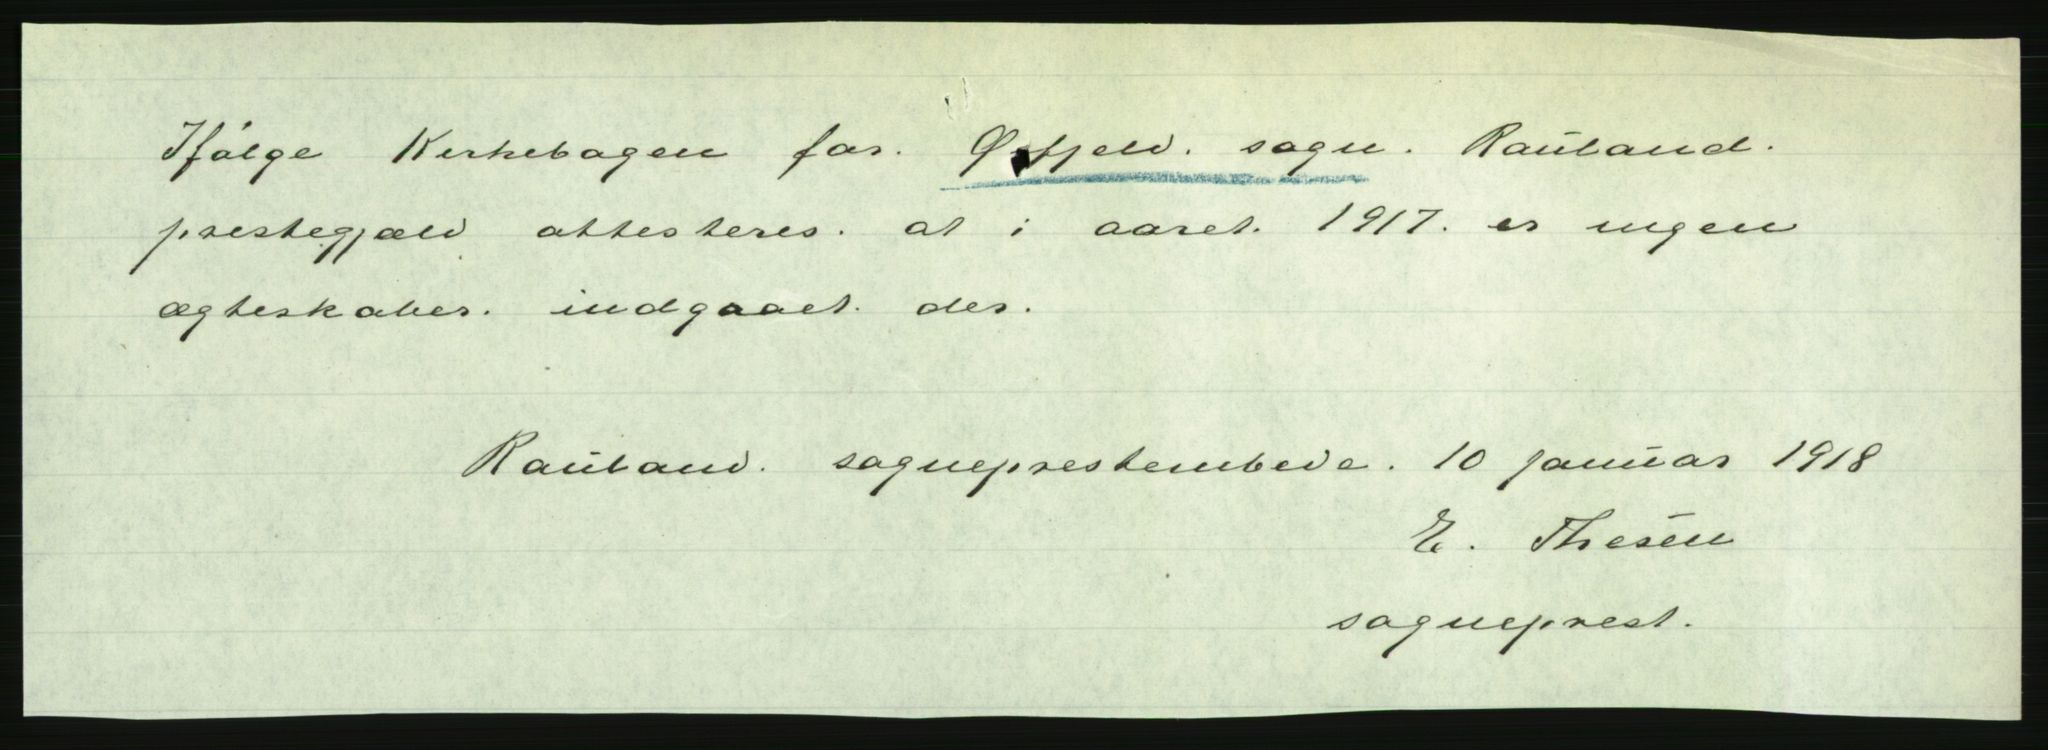 Ifølge Kirkebogen for. Øifjeld. sogn. Rauland.
prestegjæld attesteres. at i aaret. 1917. er ingen
ægteskaber. indgaaet. der.
Rauland. sogneprestembede. 10 januar 1918
E. Thesén
sogneprest.